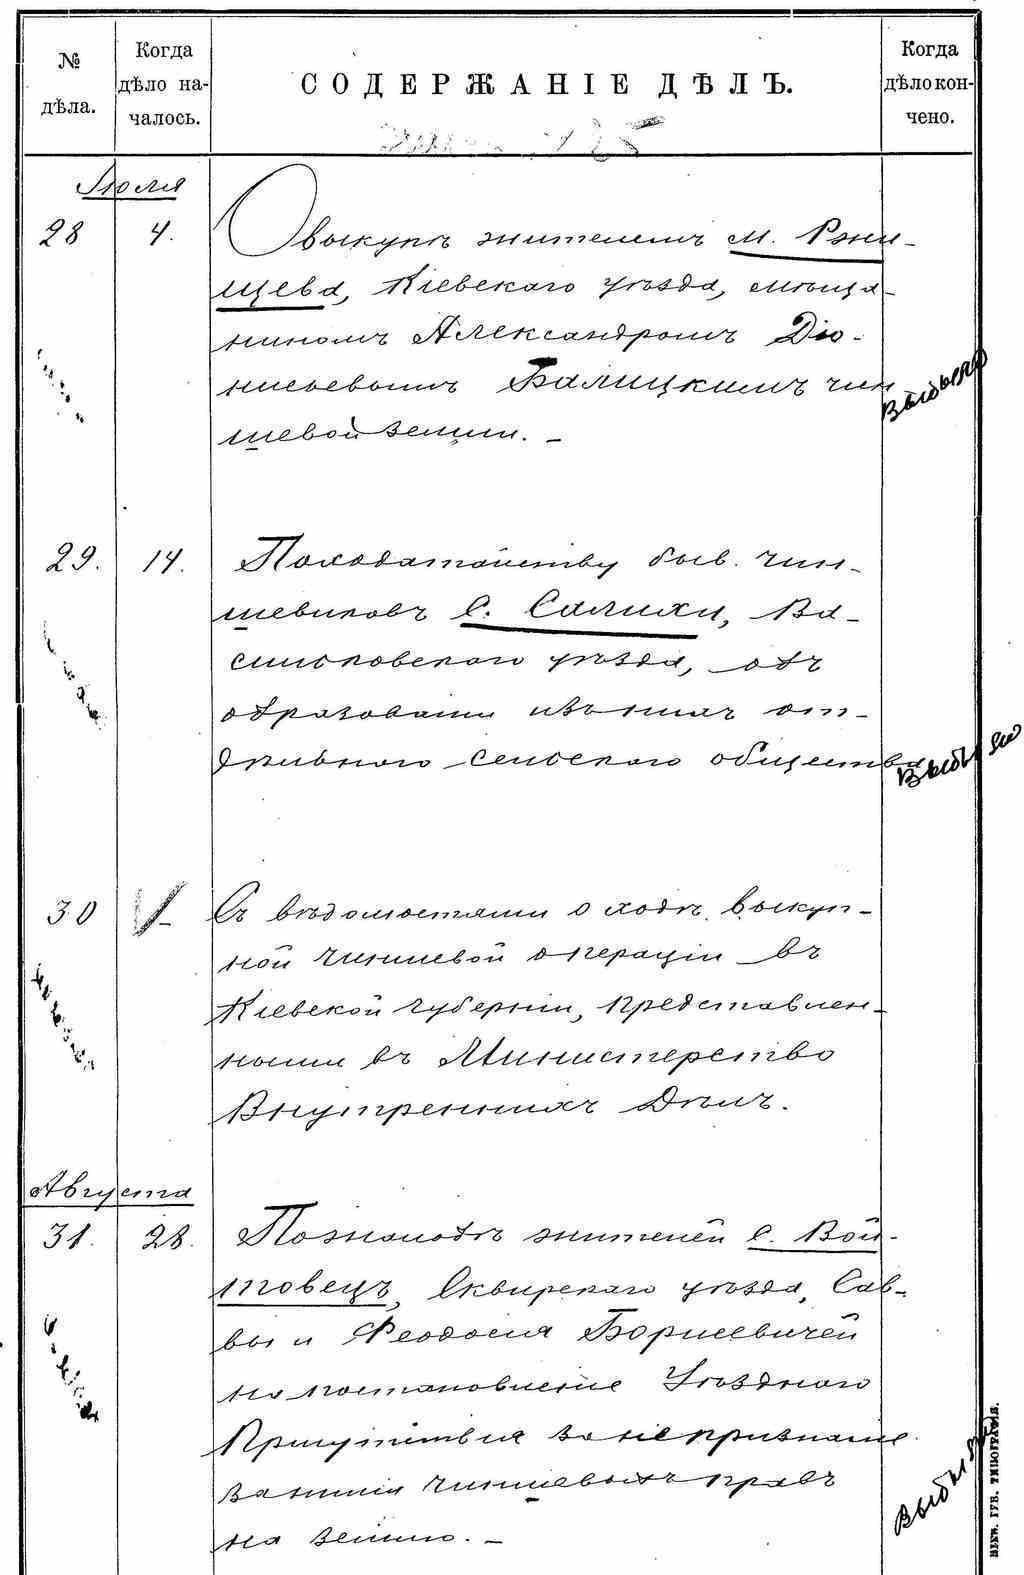 № дѣла.
Когда дѣло началось.
СОДЕРЖАНІЕ ДѢЛЪ.
Когда дѣло кончено.
Іюля
28 4. О выкупѣ жителемъ м. Ржи-
щева, Кіевскаго уѣзда, мѣща-
ниномъ Александромъ Діо-
нисьевымъ Балицкимъ чин
шевой земли. –
Выбыло
29. 14. По ходатайству быв. чин-
шевиковъ с. Салихи, Ва-
сильковскаго уѣзда, объ
образовани изъ нихъ от-
дѣльнаго сельскаго общества
Выбыло
30 Съ вѣдомостями о ходѣ выкуп-
ной чиншевой операціи въ
Кіевской губерніи, представлен-
ными въ Министерство
Внутреннихъ Дѣлъ.
Августа
31. 28. По жалобѣ жителей с. Вой-
товецъ, Сквирскаго уѣзда, Сав-
вы и Феодосія Борисевичей
на постановленіе Уѣзднаго
Присутствія за непризнаніе
за ними чиншевыхъ правъ
на землю. –
Выбыло
КІЕВ. ГУБ. ТИПОГРАФІЯ.